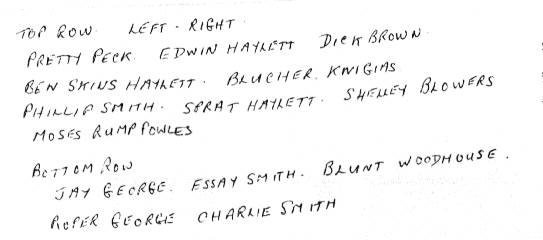 TOP ROW. LEFT - RIGHT.
PRETTY PECK. EDWIN HAYLETT DICK BROWN.
BEN SKINS HAYLETT. BLUCHER. KNIGIAS
PHILLIP SMITH. SPRAT HAYLETT. SHELLEY BLOWERS
MOSES RUMP FOWLES
BOTTOM ROW
JAY GEORGE. ESSAY SMITH. BLUNT WOODHOUSE.
ROPER GEORGE CHARLIE SMITH